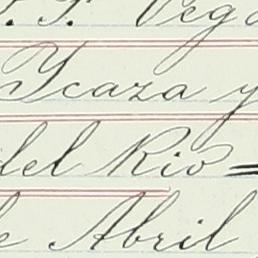 F. Vega
Ycaza y
del Rio =
de Abril